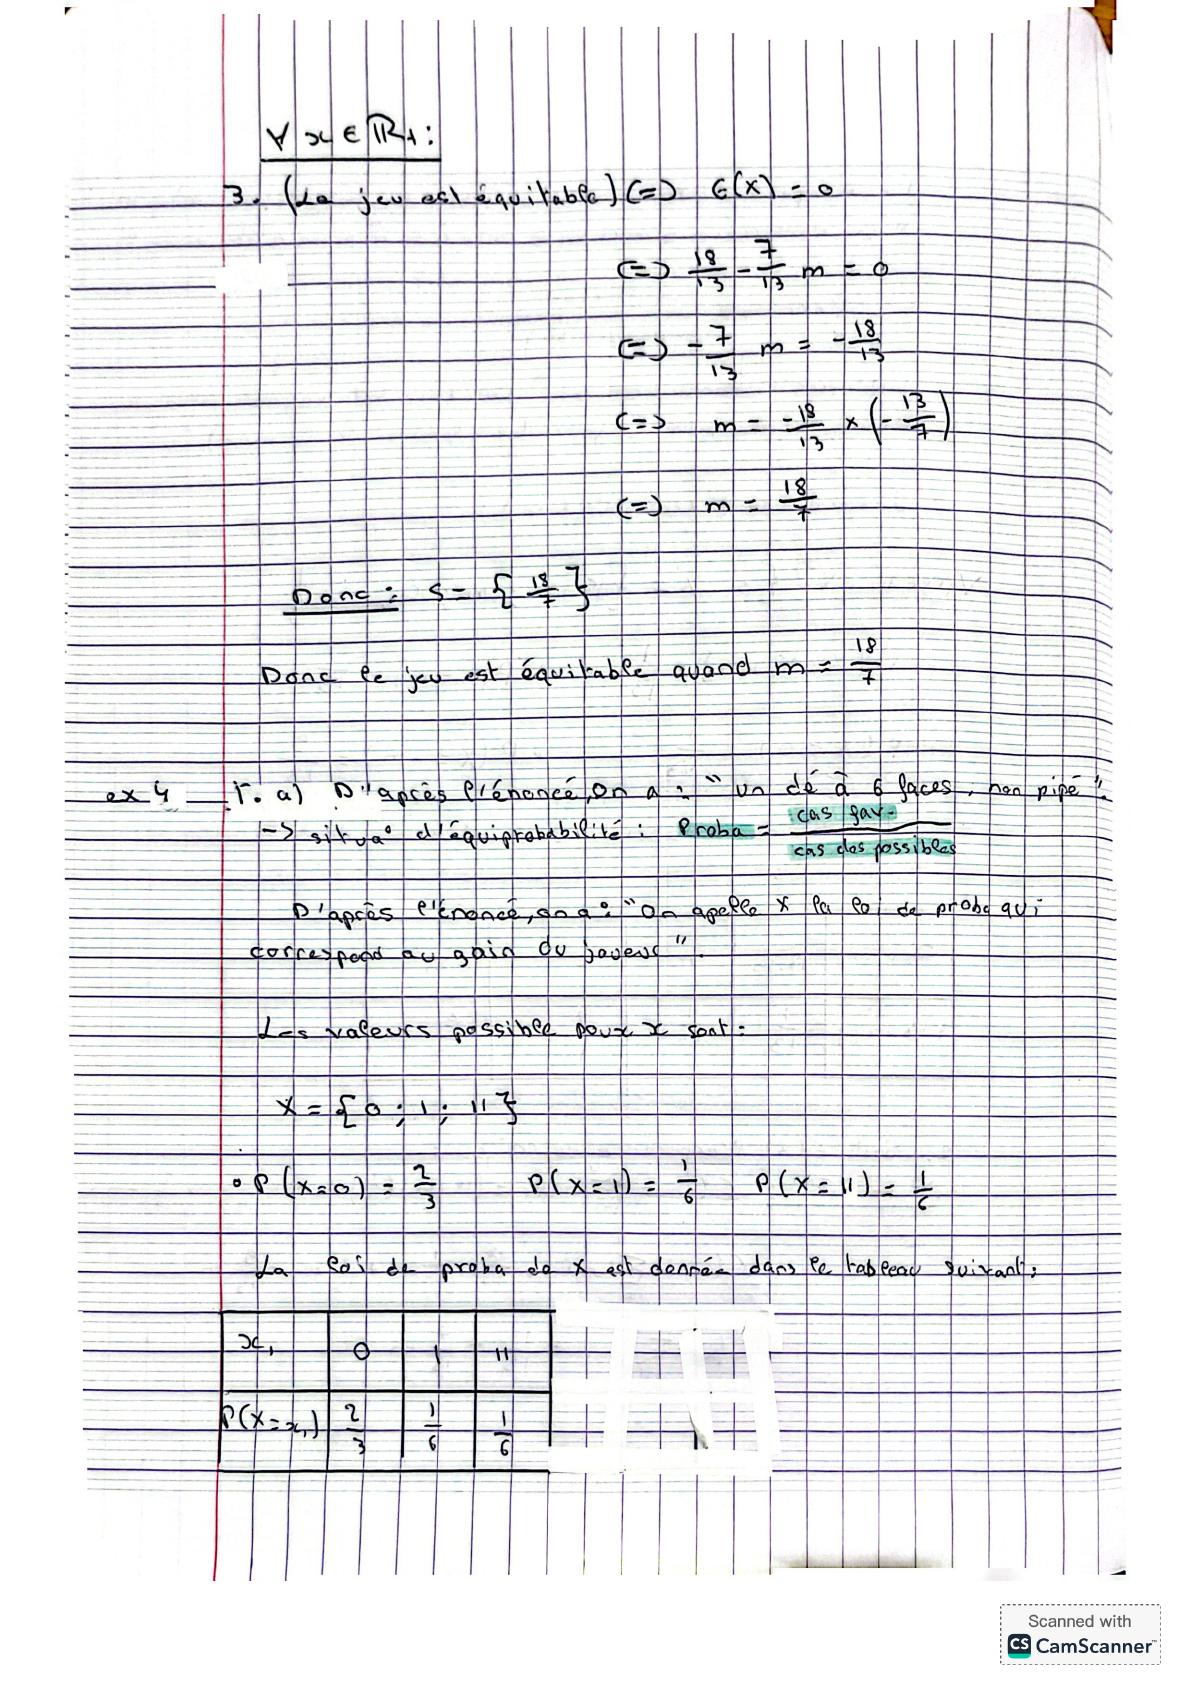 ∀ x ∈ ℝ+ :
3. (Le jeu est équitable) (=) E(X) = 0
(=) 18/13 - 7/13 m = 0
(=) - 7/13 m = - 18/13
(=) m = -18/13 × (- 13/7)
(=) m = 18/7
Donc : S = { 18/7 }
Donc le jeu est équitable quand m = 18/7
ex 4 1. a) D'après l'énoncé, on a : "un dé à 6 faces, non pipé".
-> situa° d'équiprobabilité : Proba = cas fav. / cas des possibles
D'après l'énoncé, on a : "On apelle X la loi de proba qui
correspond au gain du joueur".
Les valeurs possible pour x sont :
X = {0 ; 1 ; 11}
• P(X=0) = 2/3 P(X=1) = 1/6 P(X=11) = 1/6
La loi de proba de X est donnée dans le tableau suivant :
xi 0 1 11
P(X=xi) 2/3 1/6 1/6
Scanned with
CS CamScanner